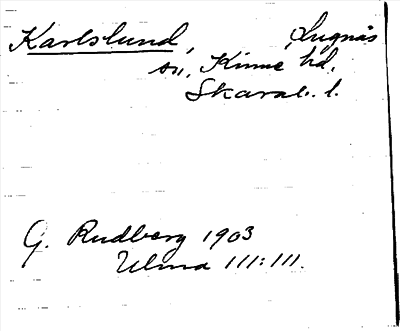 Karlslund, Lugnås
sn, Kinne hd,
Skarab. l.
G. Rudberg 1903
Ulma 111:111.